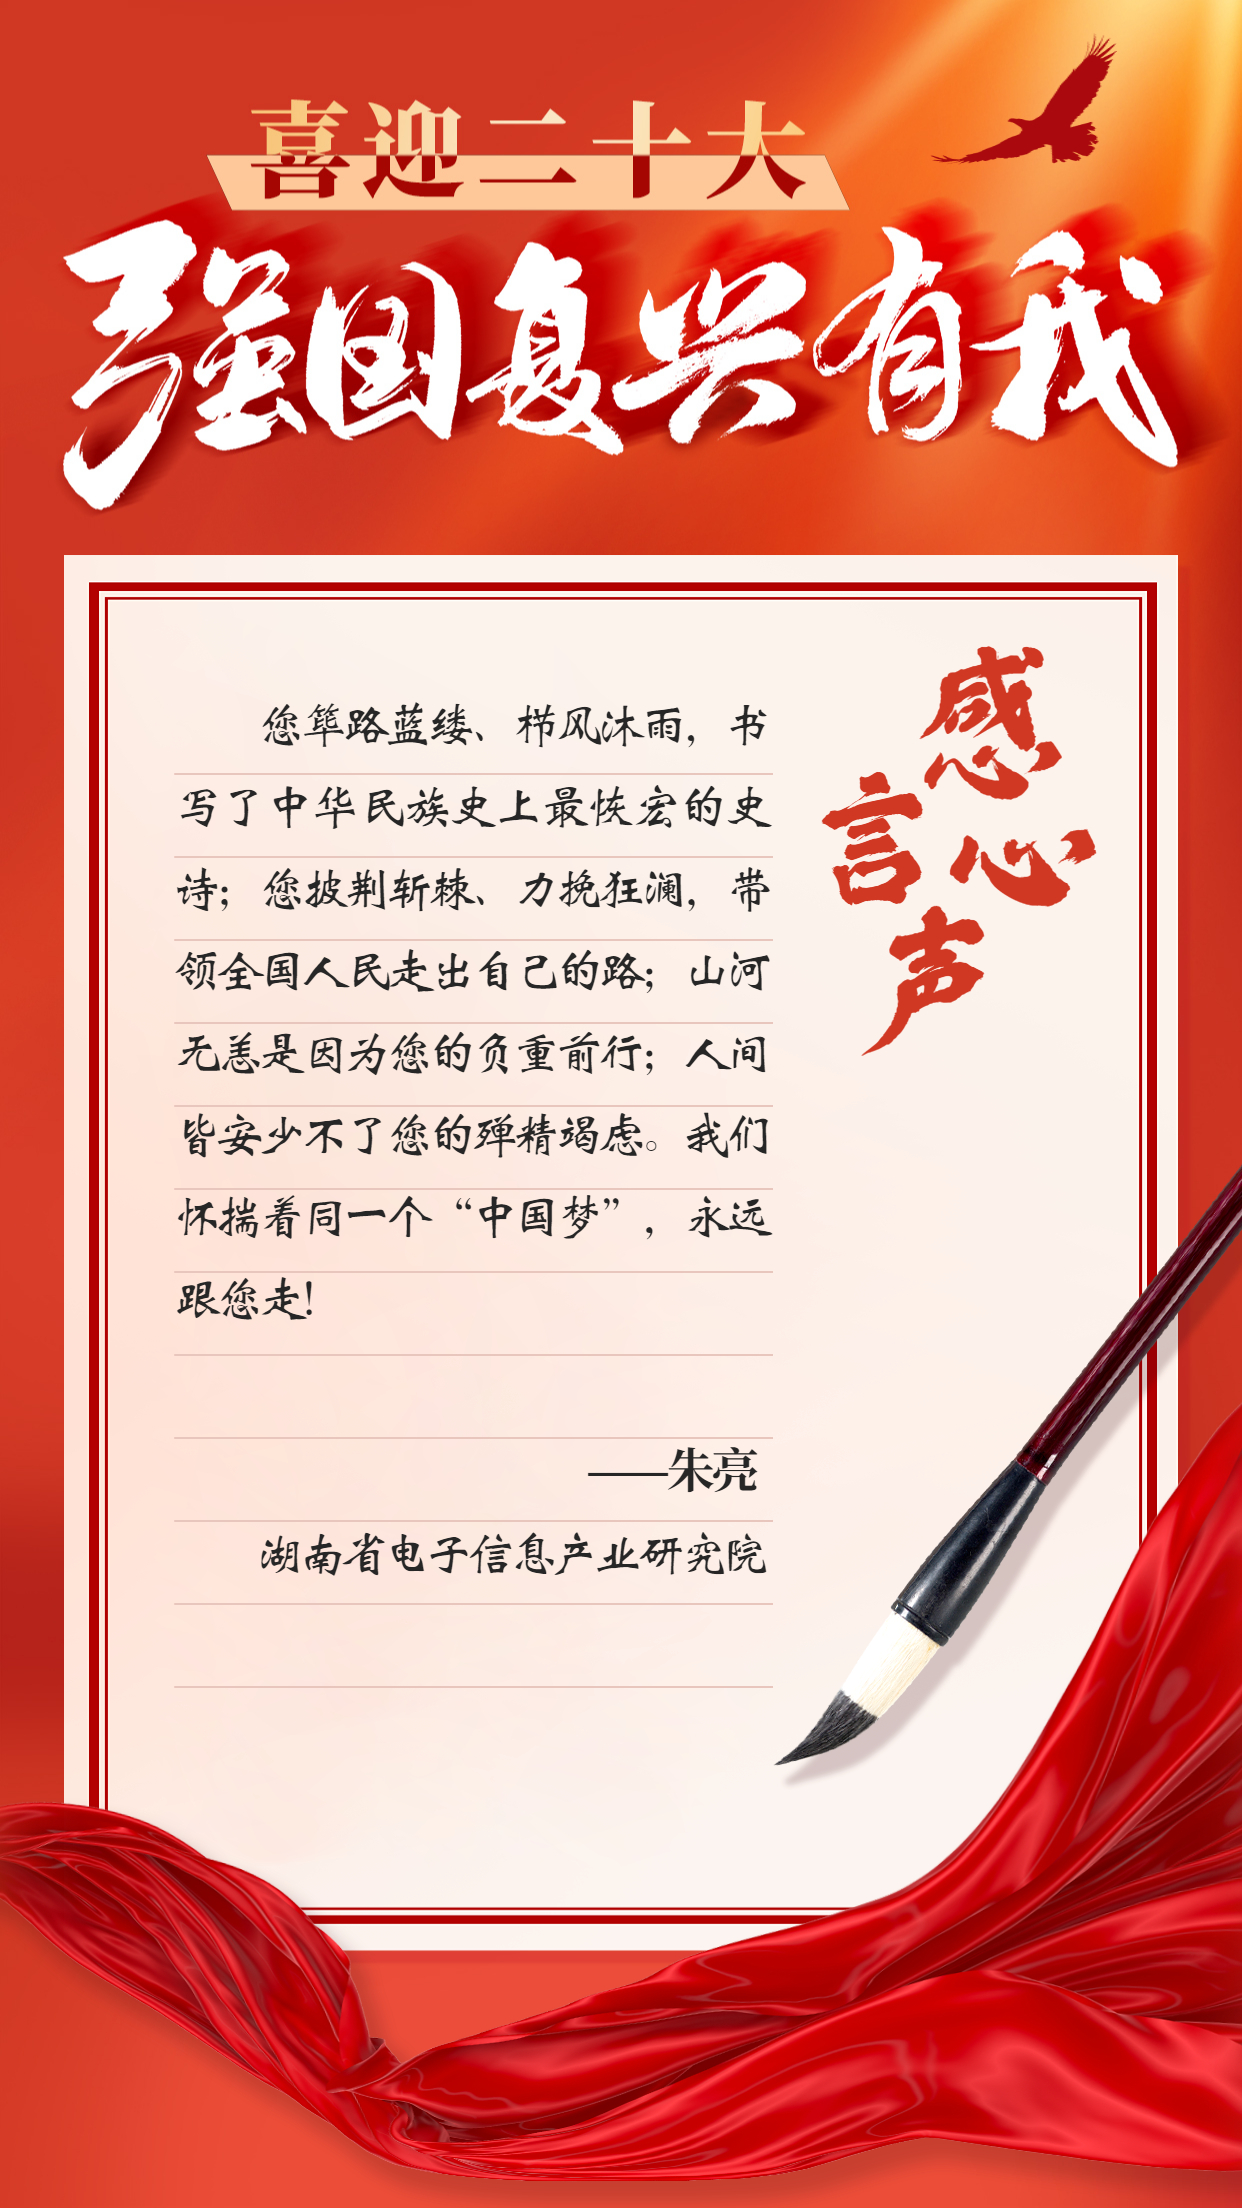 喜迎二十大
强国复兴有我
感言心声
您筚路蓝缕、栉风沐雨，书
写了中华民族史上最恢宏的史
诗；您披荆斩棘、力挽狂澜，带
领全国人民走出自己的路；山河
无恙是因为您的负重前行；人间
皆安少不了您的殚精竭虑。我们
怀揣着同一个“中国梦”，永远
跟您走！
——朱亮
湖南省电子信息产业研究院